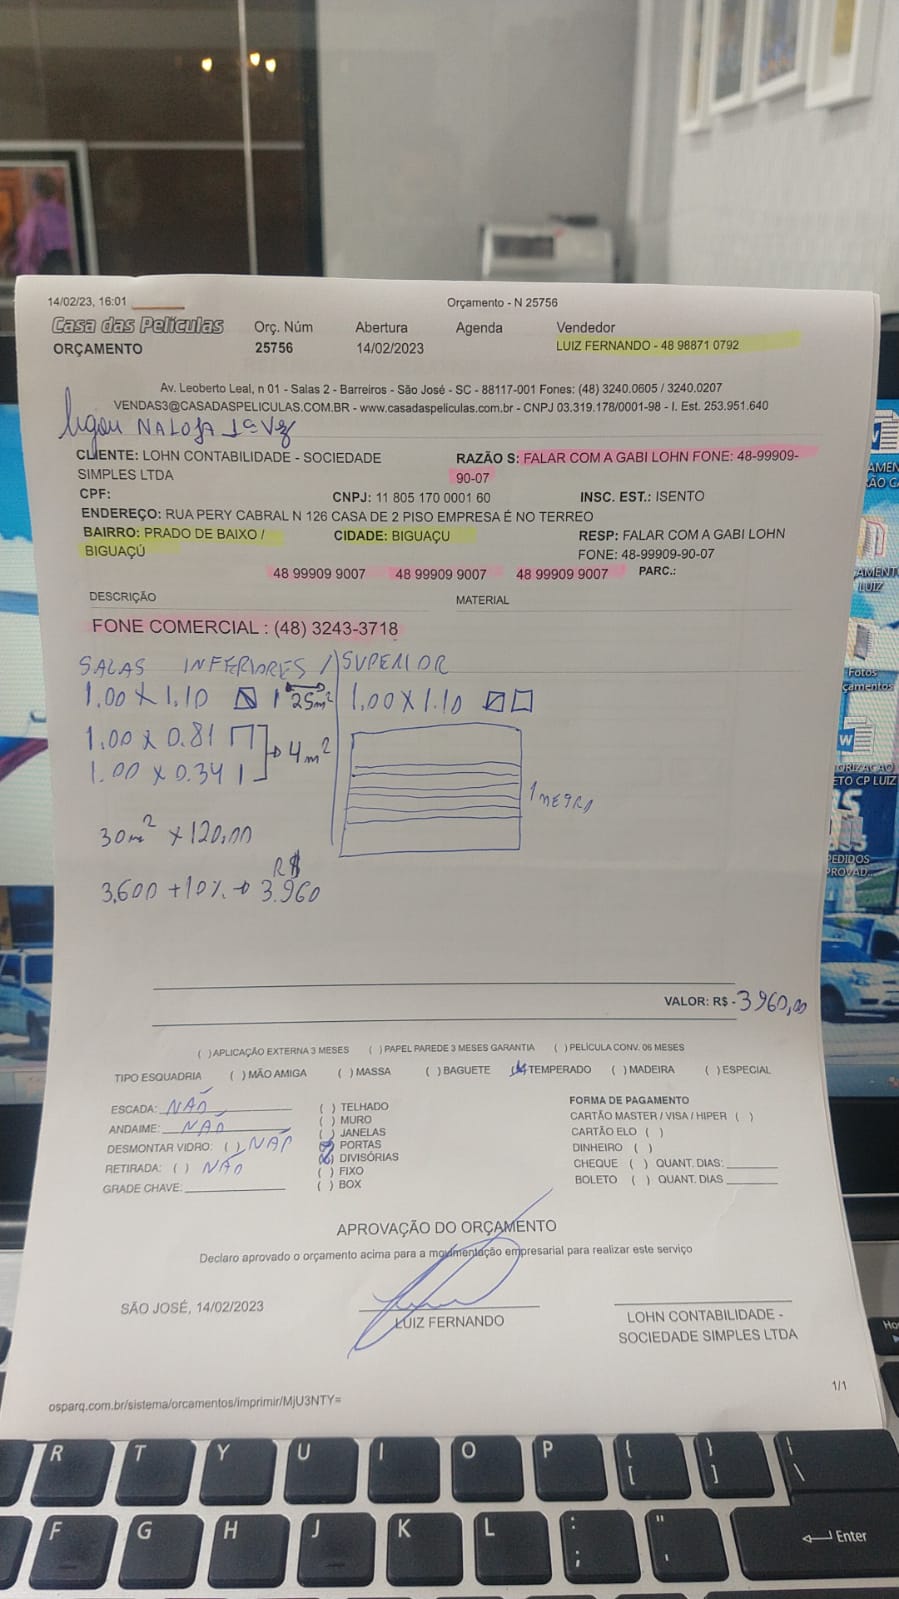 14/02/23, 16:01
Orçamento - N 25756
Casa das Películas
Orç. Núm Abertura Agenda Vendedor
ORÇAMENTO 25756 14/02/2023 LUIZ FERNANDO - 48 98871 0792
Av. Leoberto Leal, n 01 - Salas 2 - Barreiros - São José - SC - 88117-001 Fones: (48) 3240.0605 / 3240.0207
VENDAS3@CASADASPELICULAS.COM.BR - www.casadaspeliculas.com.br - CNPJ 03.319.178/0001-98 - I. Est. 253.951.640
ligou NA LOJA 1ª Vez
CLIENTE: LOHN CONTABILIDADE - SOCIEDADE
SIMPLES LTDA
RAZÃO S: FALAR COM A GABI LOHN FONE: 48-99909-
90-07
CPF: CNPJ: 11 805 170 0001 60 INSC. EST.: ISENTO
ENDEREÇO: RUA PERY CABRAL N 126 CASA DE 2 PISO EMPRESA É NO TERREO
BAIRRO: PRADO DE BAIXO /
BIGUAÇÚ
CIDADE: BIGUAÇU
RESP: FALAR COM A GABI LOHN
FONE: 48-99909-90-07
48 99909 9007 48 99909 9007 48 99909 9007 PARC.:
DESCRIÇÃO MATERIAL
FONE COMERCIAL : (48) 3243-3718
SALAS INFERIORES / SUPERIOR
1.00 X 1.10 25m² 1.00 X 1.10
1.00 X 0.81
1.00 X 0.34
4m²
1 NEGRO
30m² X 120,00
R$
3.600 + 10% → 3.960
VALOR: R$ - 3960,00
( ) APLICAÇÃO EXTERNA 3 MESES ( ) PAPEL PAREDE 3 MESES GARANTIA ( ) PELÍCULA CONV. 06 MESES
TIPO ESQUADRIA ( ) MÃO AMIGA ( ) MASSA ( ) BAGUETE (X) TEMPERADO ( ) MADEIRA ( ) ESPECIAL
ESCADA: NÃO
ANDAIME: NÃO
DESMONTAR VIDRO: ( ) NÃO
RETIRADA: ( ) NÃO
GRADE CHAVE:
( ) TELHADO
( ) MURO
( ) JANELAS
(X) PORTAS
(X) DIVISÓRIAS
( ) FIXO
( ) BOX
FORMA DE PAGAMENTO
CARTÃO MASTER / VISA / HIPER ( )
CARTÃO ELO ( )
DINHEIRO ( )
CHEQUE ( ) QUANT. DIAS:
BOLETO ( ) QUANT. DIAS
APROVAÇÃO DO ORÇAMENTO
Declaro aprovado o orçamento acima para a movimentação empresarial para realizar este serviço
SÃO JOSÉ, 14/02/2023
LUIZ FERNANDO
LOHN CONTABILIDADE -
SOCIEDADE SIMPLES LTDA
1/1
osparq.com.br/sistema/orcamentos/imprimir/MjU3NTY=
R T Y U I O P { [ } ] | \
F G H J K L : ; " ' Enter